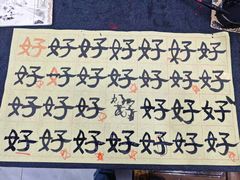 好好好好好好好
好好好好好好好
好好好好好好
好好好好好好好